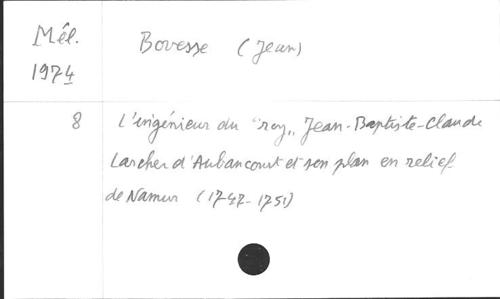 Mél.
1974
Bovesse (Jean)
8
L'ingénieur du "roy" Jean-Baptiste-Claude
Larcher d'Aubancourt et son plan en relief
de Namur (1747-1751)